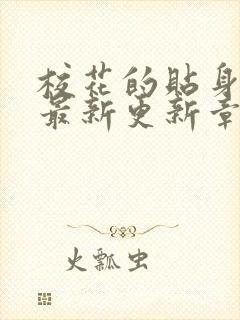 校花的貼身
最新更新章
火瓢虫